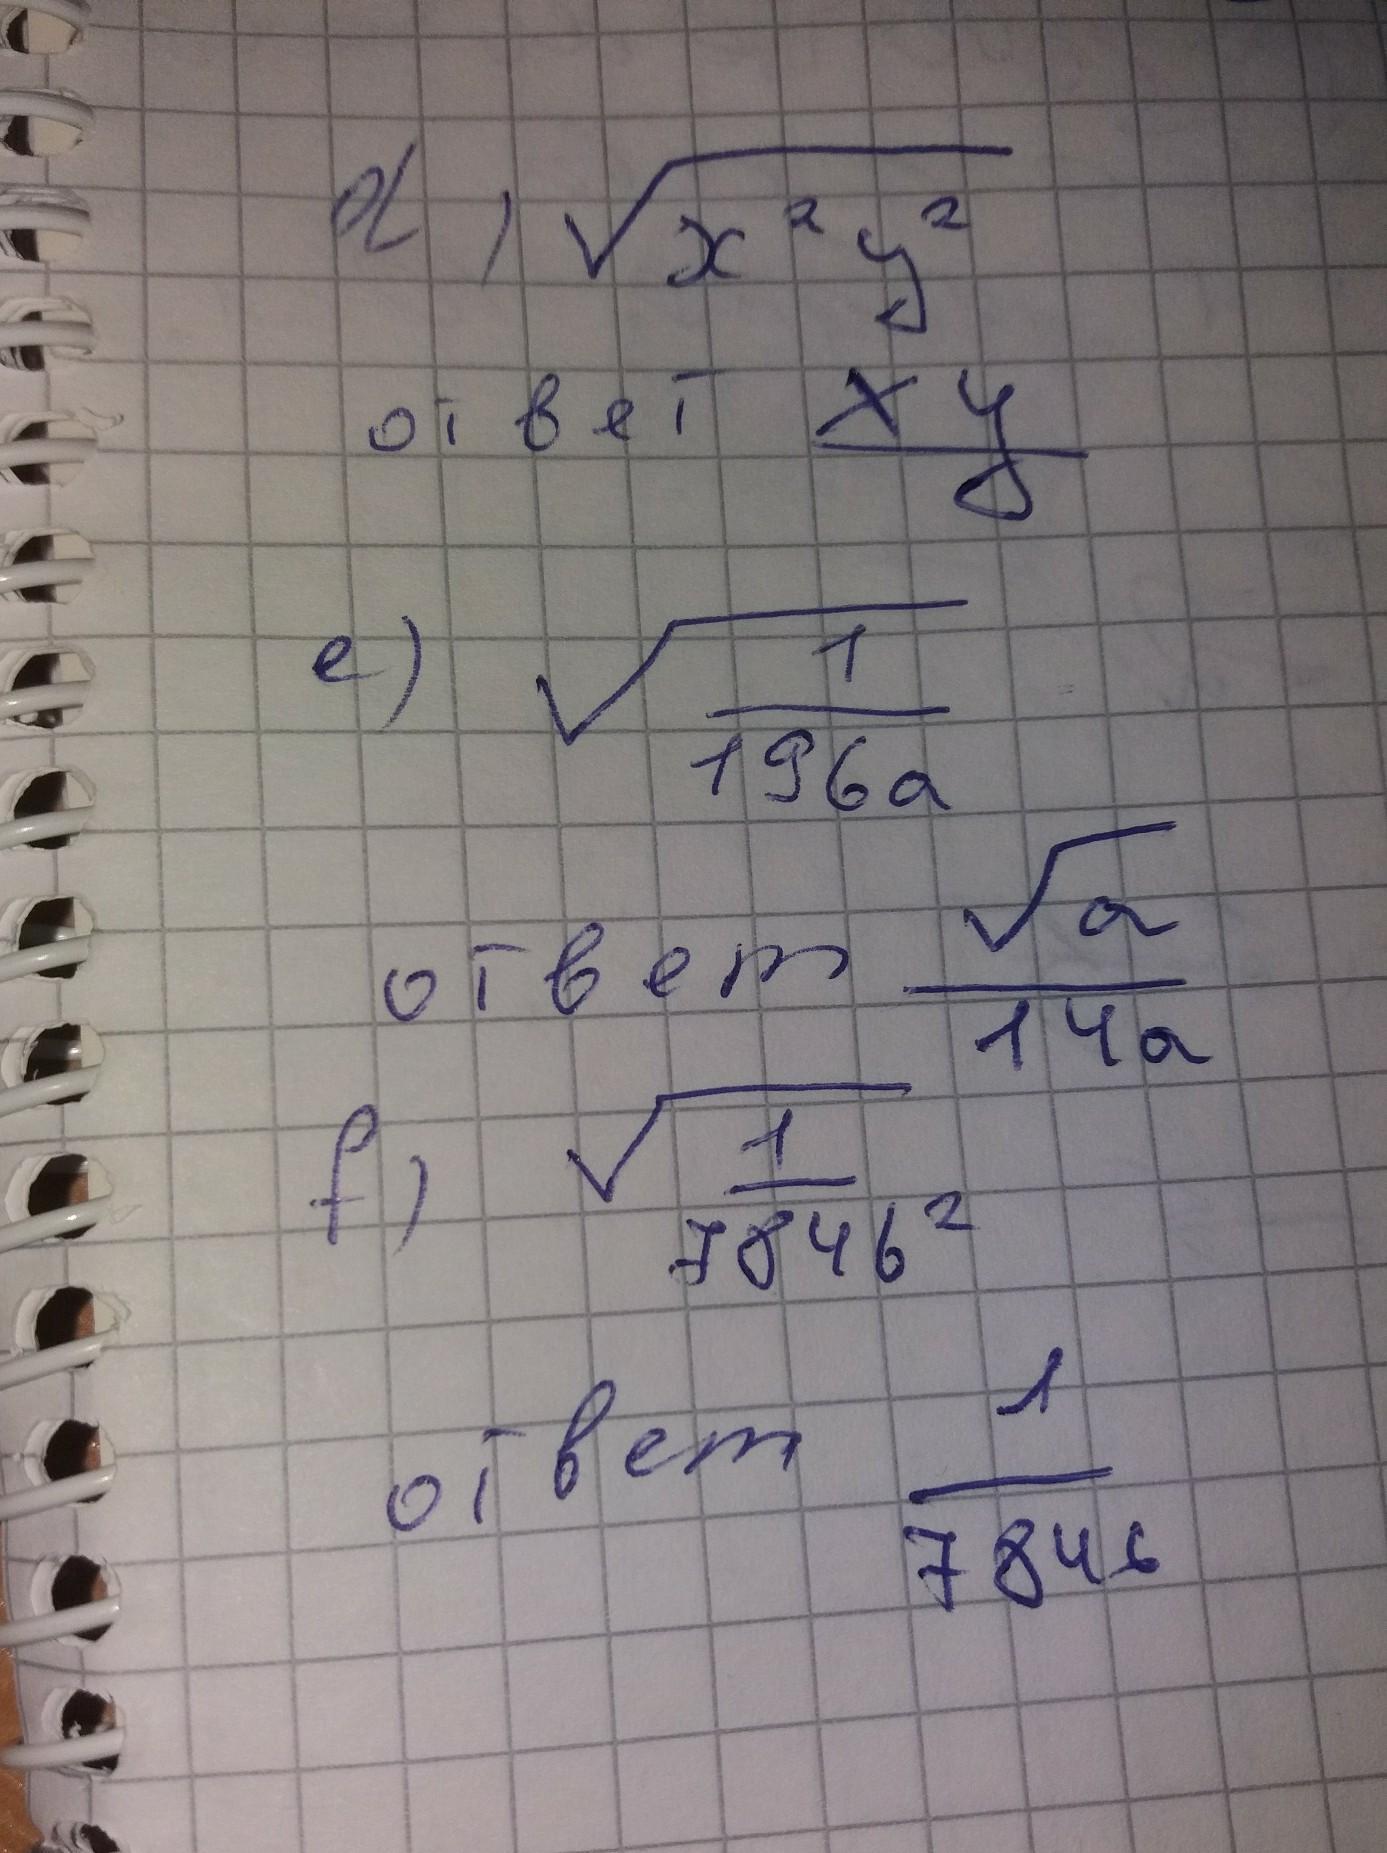 d) √x²y²
ответ xy
e) √1/196a
ответ √a/14a
f) √1/784b²
ответ 1/784b